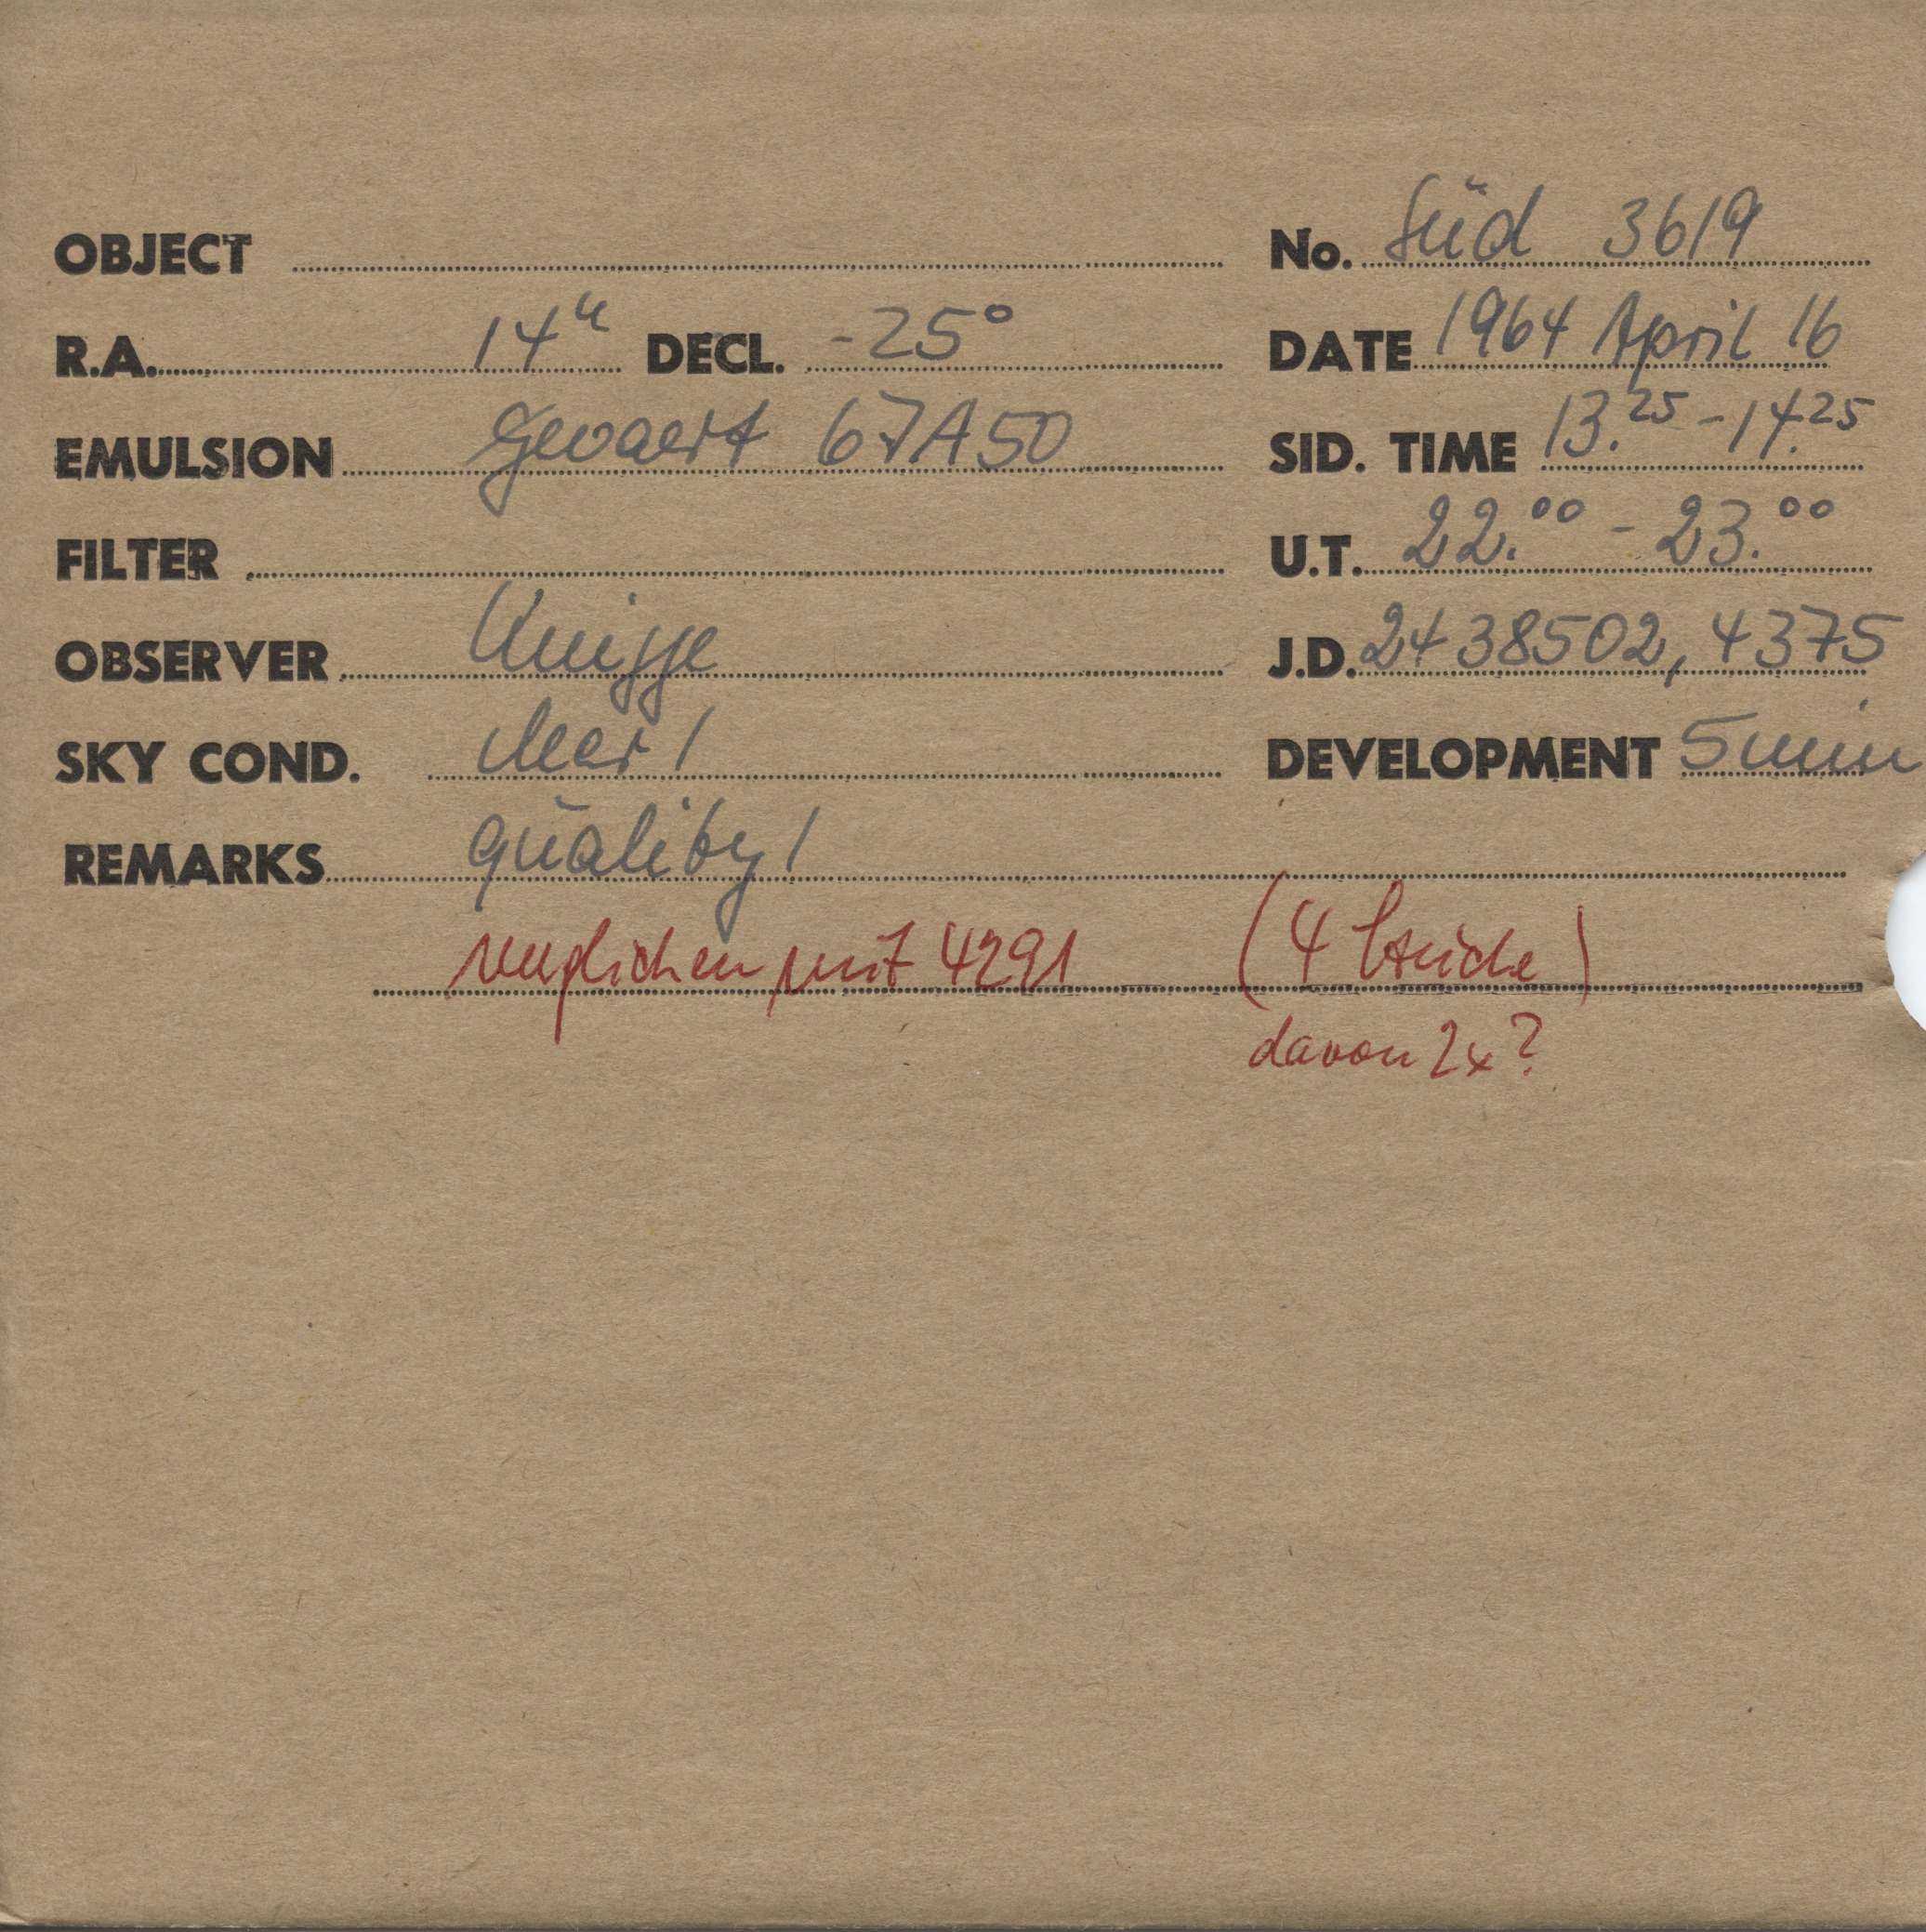 OBJECT No. Süd 3619
R.A. 14h DECL. -25° DATE 1964 April 16
EMULSION Gevaert 67A50 SID. TIME 13.25 - 14.25
FILTER U.T. 22.00 - 23.00
OBSERVER Knigge J.D. 2438502,4375
SKY COND. clear 1 DEVELOPMENT 5 min
REMARKS quality 1
verglichen mit 4291 (4 Striche)
davon 2x?